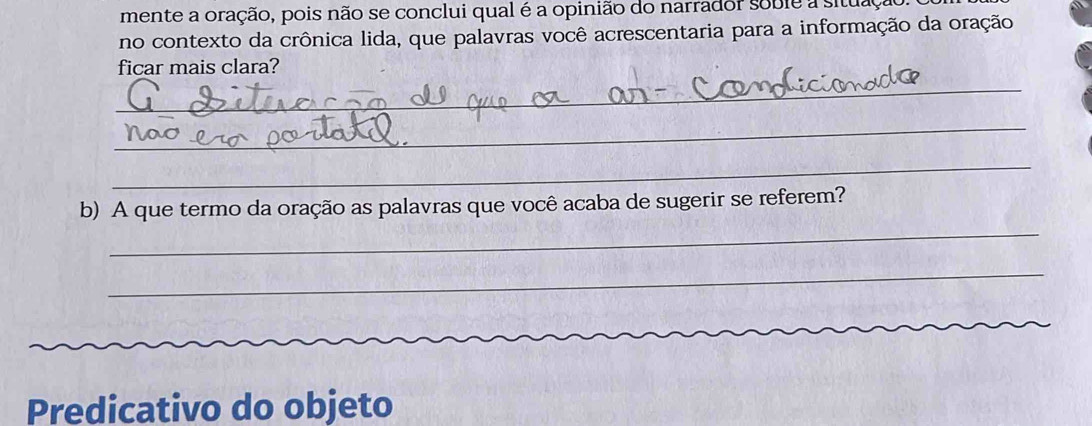 mente a oração, pois não se conclui qual é a opinião do narrador sobre a situação.
no contexto da crônica lida, que palavras você acrescentaria para a informação da oração
ficar mais clara?
a situação de que o ar-condicionado
não era portatil.
b) A que termo da oração as palavras que você acaba de sugerir se referem?
Predicativo do objeto